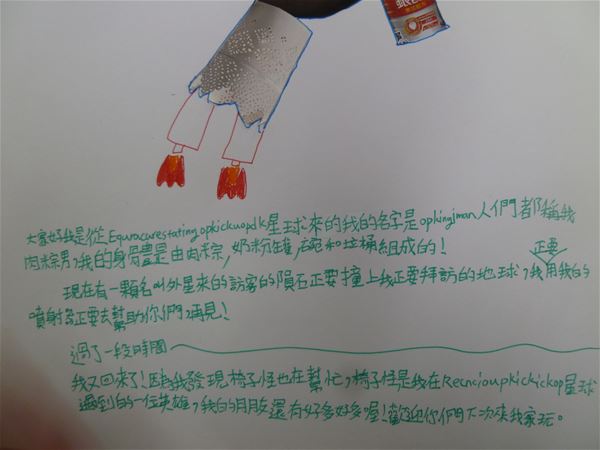 大家好我是從Equvacurestatingopkickuopdk星球來的我的名字是opkingiman人們都稱我
肉粽男,我的身體是由肉粽,奶粉罐,碗和垃圾桶組成的!
正要
現在有一顆名叫外星來的訪客的隕石正要撞上我正要拜訪的地球,我用我的
噴射器正要去幫助你們,再見!
過了一段時間
我又回來了!因為我發現椅子怪也在幫忙,椅子怪是我在Recncioupkickickop星球
遇到的一位英雄,我的朋友還有好多好多喔!歡迎你們下次來我家玩。